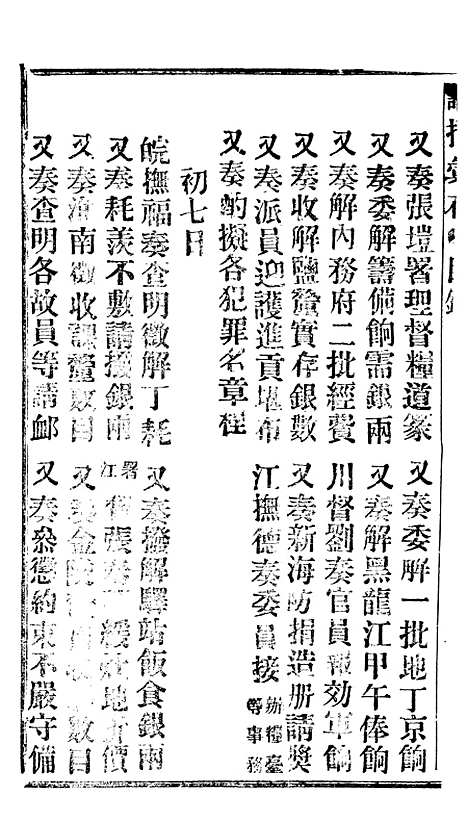 又奏張塏署理督糧道篆 又奏委解一批地丁京餉
又奏委解籌備餉需銀兩 又奏解黑龍江甲午俸餉
又奏解內務府二批經費 川督劉奏官員報効軍餉
又奏收解鹽釐實存銀數 又奏新海防捐造册請獎
又奏派員迎護進貢堪布 江撫德奏委員接辦糧臺等事務
又奏酌擬各犯罪名章程
初七日
皖撫福奏查明徵解丁耗 又奏撥解驛站飯食銀兩
又奏耗羨不敷請撥銀兩 署江 張奏 緩 地 價
又奏淮南徵收課釐數目 又奏金陵 收 數目
又奏查明各故員等請邮 又奏叅懲約束不嚴守備